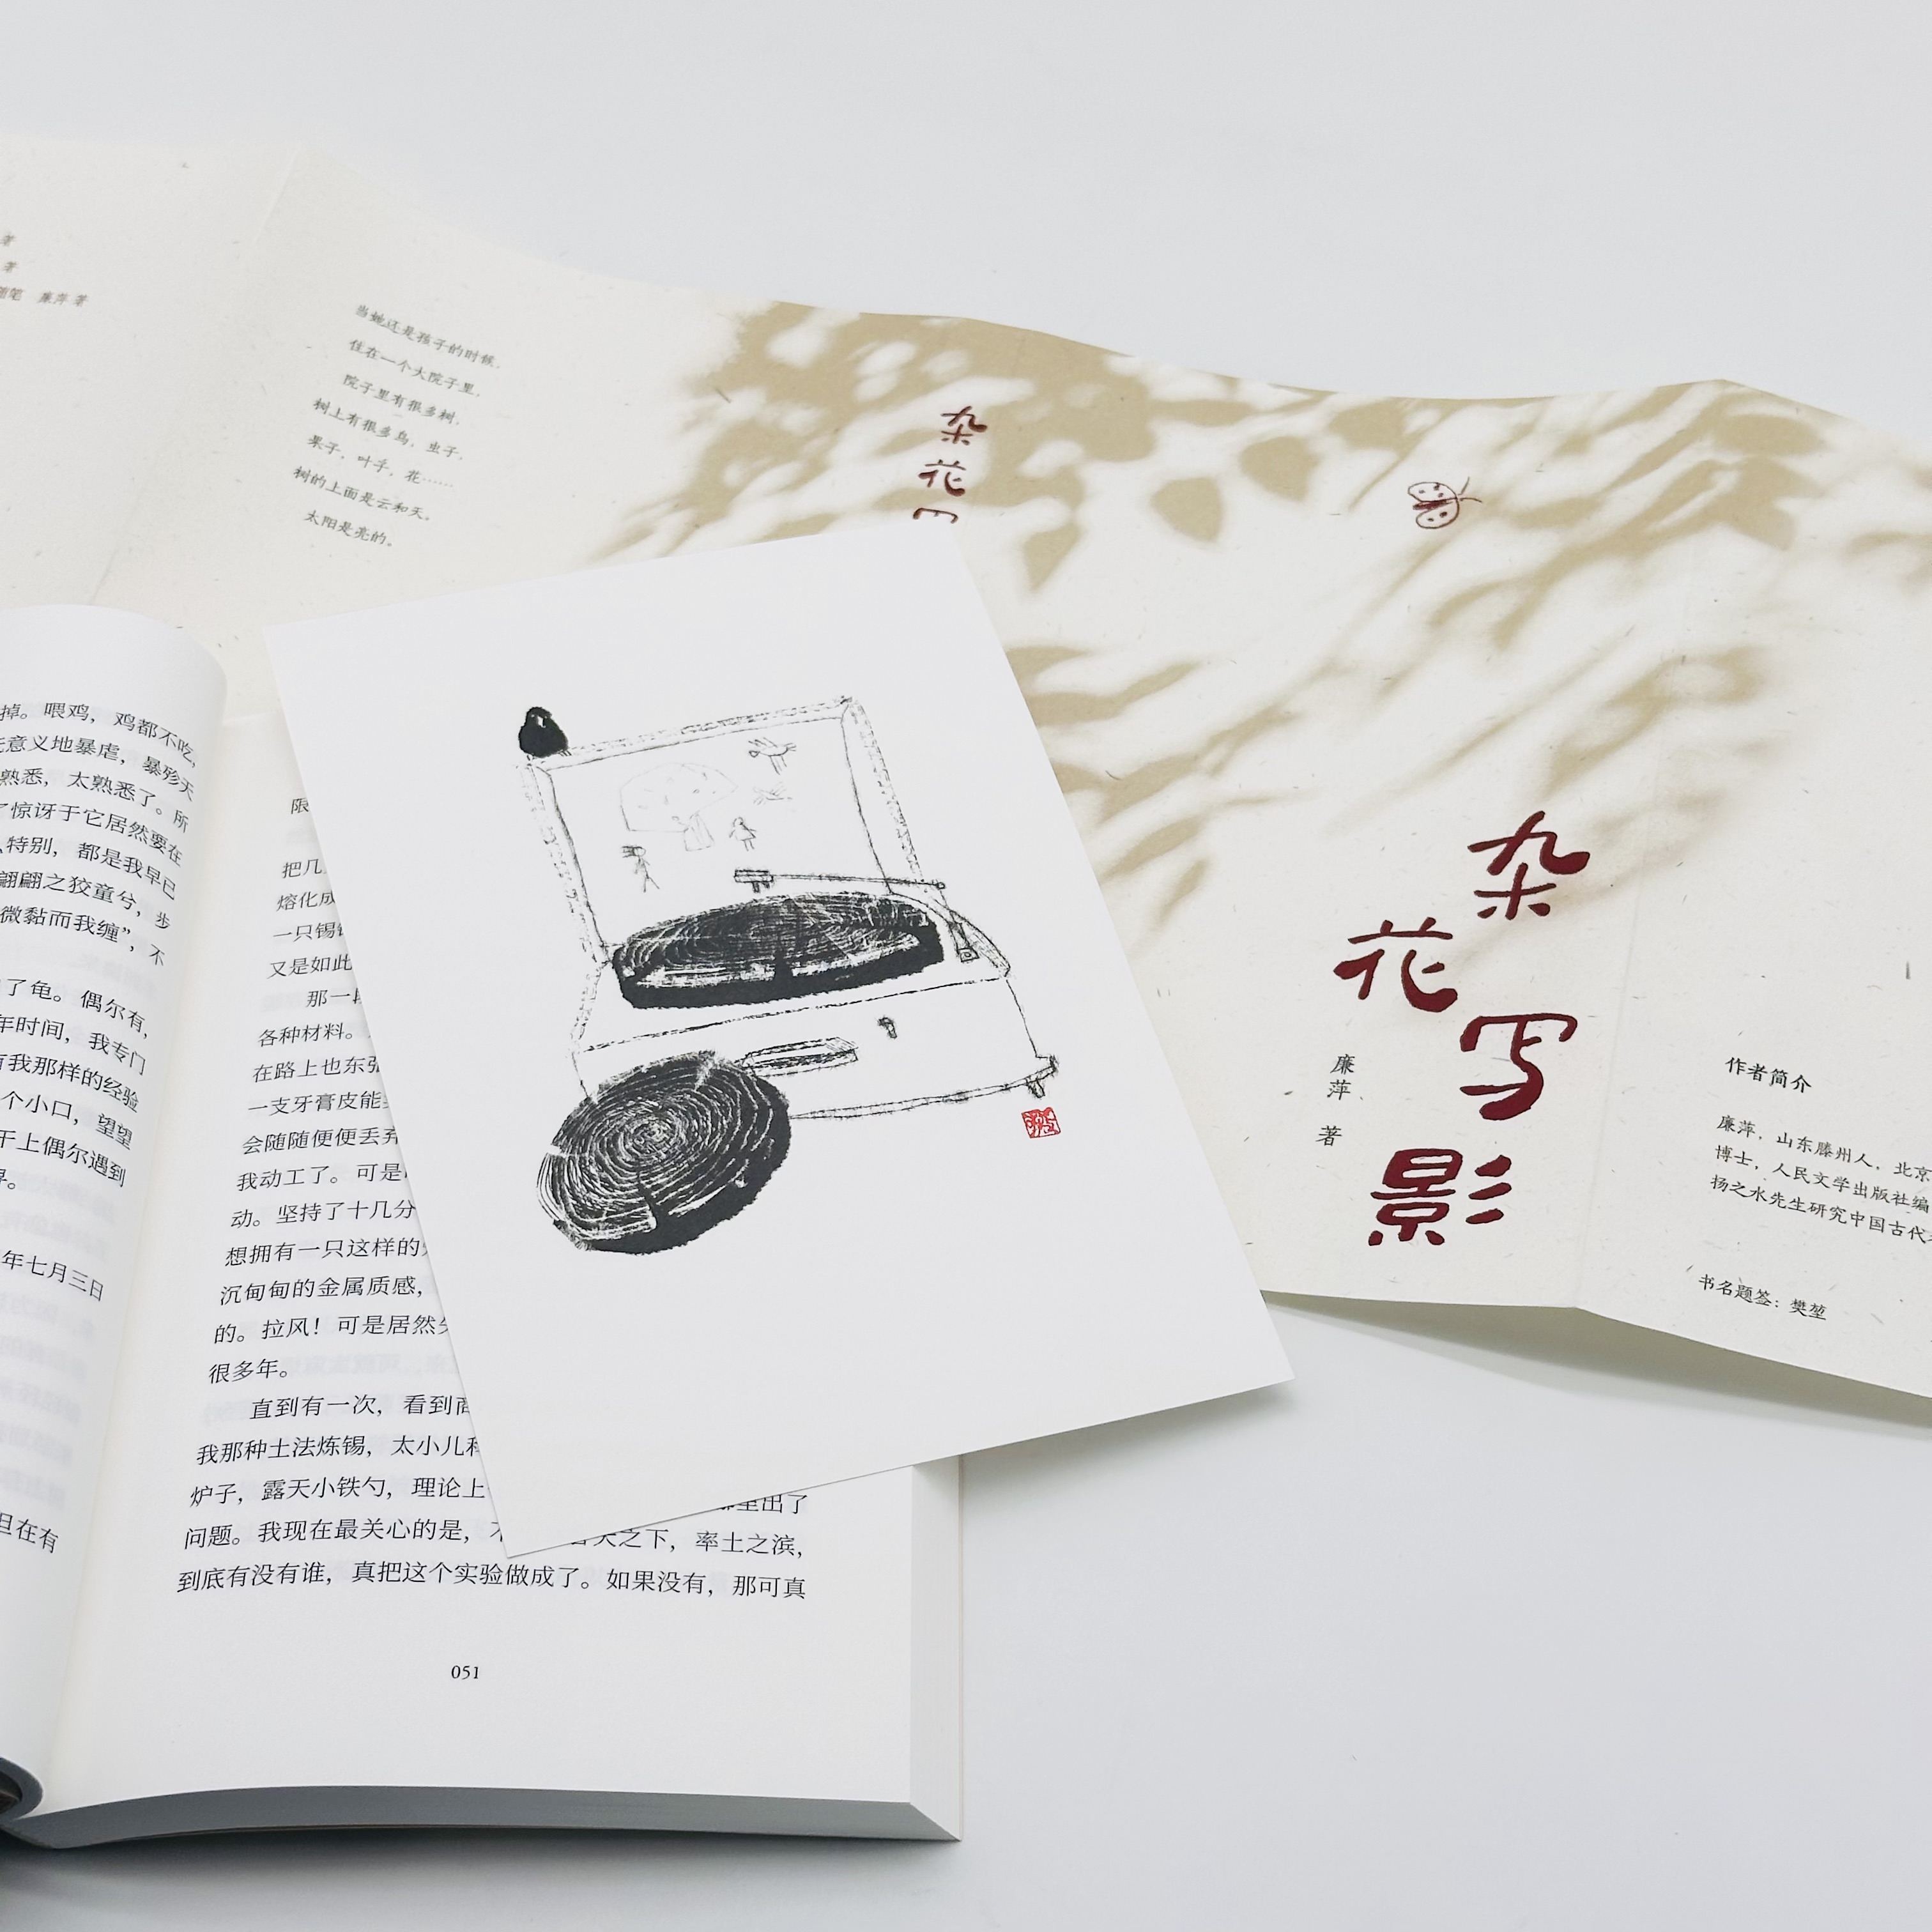 著
著
随笔　廉萍 著
当她还是孩子的时候，
住在一个大院子里，
院子里有很多树，
树上有很多鸟，虫子，
果子，叶子，花……
树的上面是云和天。
太阳是亮的。
杂花写
杂花写影
廉萍 著
作者简介
廉萍，山东滕州人，北京
博士，人民文学出版社编
扬之水先生研究中国古代
书名题签：樊堃
掉。喂鸡，鸡都不吃，
意义地暴虐，暴殄天
熟悉，太熟悉了。所
了惊讶于它居然要在
特别，都是我早已
翩翩之狡童兮，步
微黏而我缠”，不
了龟。偶尔有，
年时间，我专门
有我那样的经验
个小口，望望
干上偶尔遇到
。
年七月三日
但在有
限
把几
熔化成
一只锡
又是如此
那一段
各种材料。
在路上也东张
一支牙膏皮能
会随随便便丢弃
我动工了。可是
动。坚持了十几分
想拥有一只这样的
沉甸甸的金属质感，
的。拉风！可是居然失
很多年。
直到有一次，看到商
我那种土法炼锡，太小儿科
炉子，露天小铁勺，理论上 哪里出了
问题。我现在最关心的是， 天之下，率土之滨，
到底有没有谁，真把这个实验做成了。如果没有，那可真
051